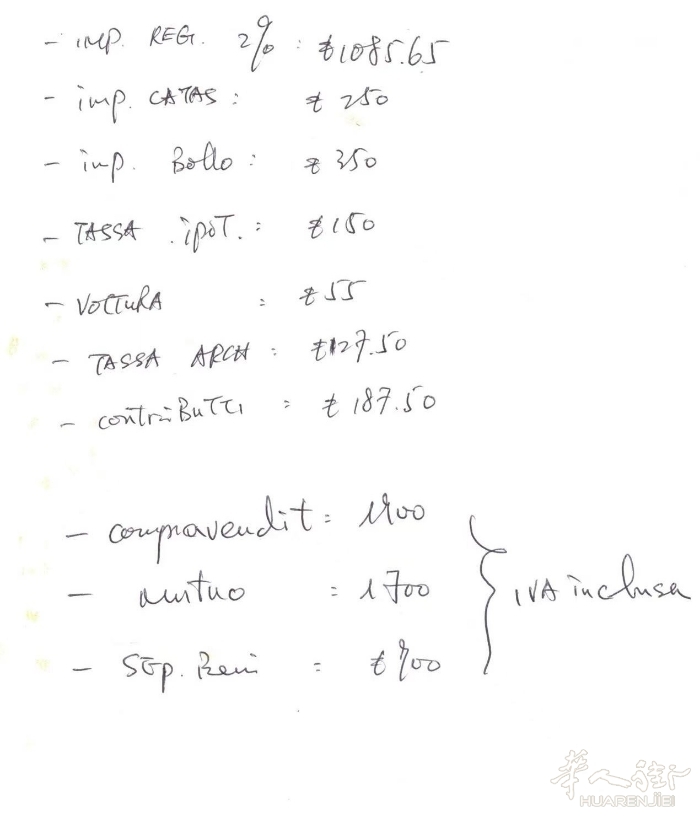 - IMP. REG. 2% : €1085.65
- imp. CATAS : € 250
- imp. Bollo : € 350
- TASSA .ipoT. : €150
- VOLTURA : €55
- TASSA ARCH : €127.50
- contriBuTTi : € 187.50
- compravendit =
- mutuo = 1700
- SEp. Beni = € 900
IVA inclusa
華人街
HUARENJIE